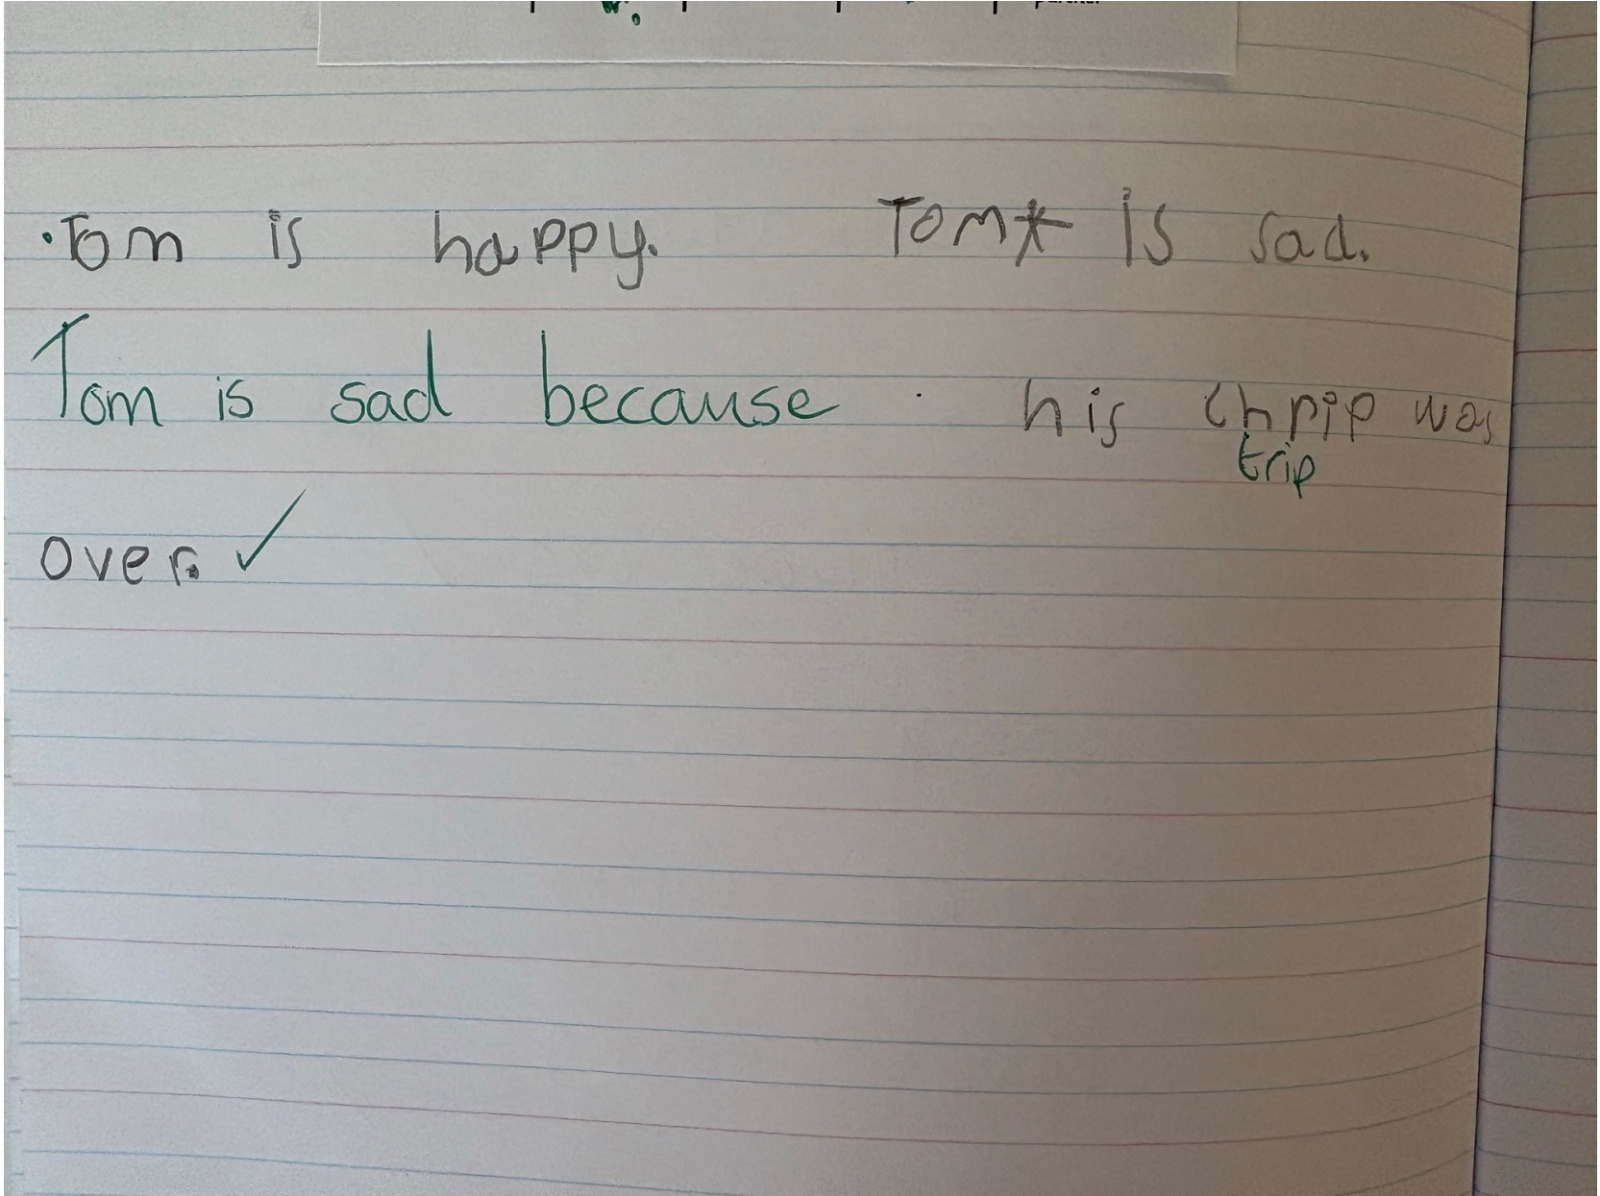 Tom is happy. Tom is sad.
Tom is sad because his chrip was
trip
over. ✓